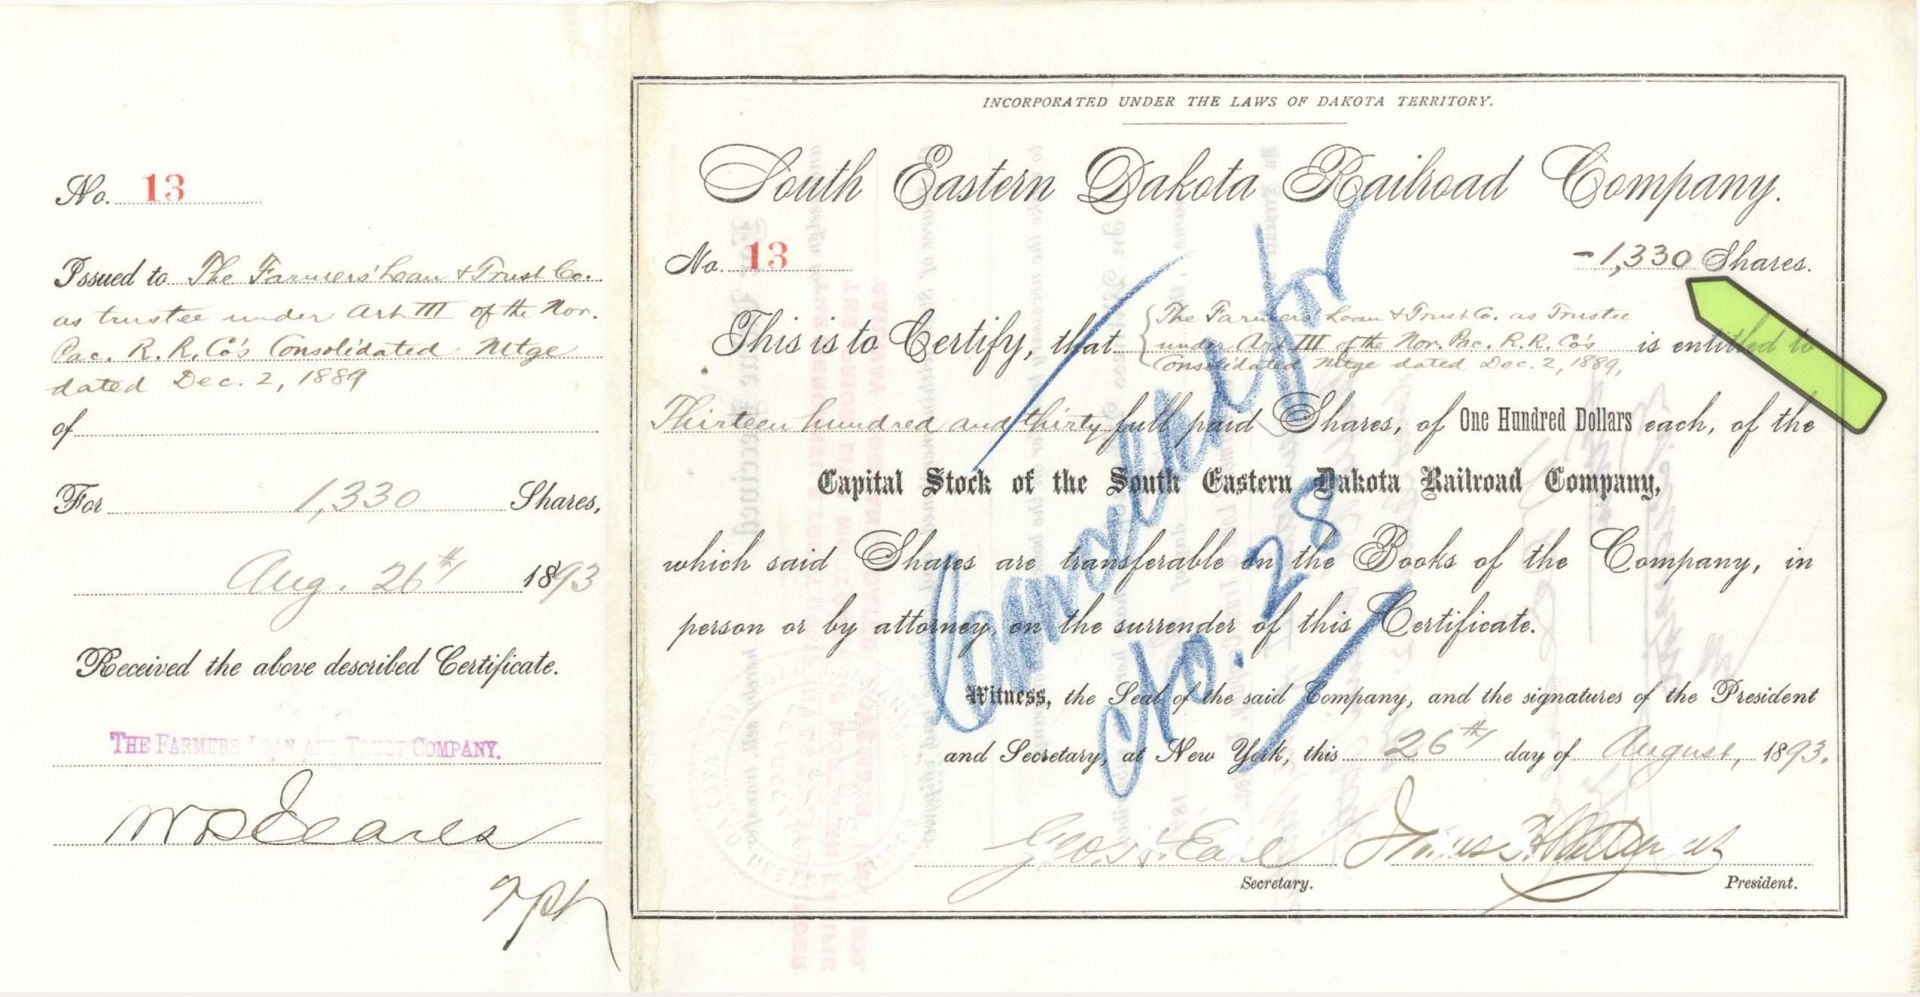 No. 13
Issued to The Farmers' Loan & Trust Co.
as trustee under Art III of the Nor.
Pac. R.R. Co's Consolidated Mtge
dated Dec. 2, 1889
of
For 1,330 Shares,
Aug. 26th 1893
Received the above described Certificate.
THE FARMERS LOAN AND TRUST COMPANY.
INCORPORATED UNDER THE LAWS OF DAKOTA TERRITORY.
South Eastern Dakota Railroad Company.
No. 13 -1,330 Shares.
This is to Certify, that The Farmers' Loan & Trust Co. as Trustee
under Art III of the Nor. Pac. R.R. Co's is entitled to
Consolidated Mtge dated Dec. 2, 1889,
Thirteen hundred and thirty full paid Shares, of One Hundred Dollars each, of the
Capital Stock of the South Eastern Dakota Railroad Company,
which said Shares are transferable on the Books of the Company, in
person or by attorney, on the surrender of this Certificate.
Witness, the Seal of the said Company, and the signatures of the President
and Secretary, at New York, this 26th day of August, 1893.
Geo. H. Earl
Secretary. President.
Cancelled for
No. 28